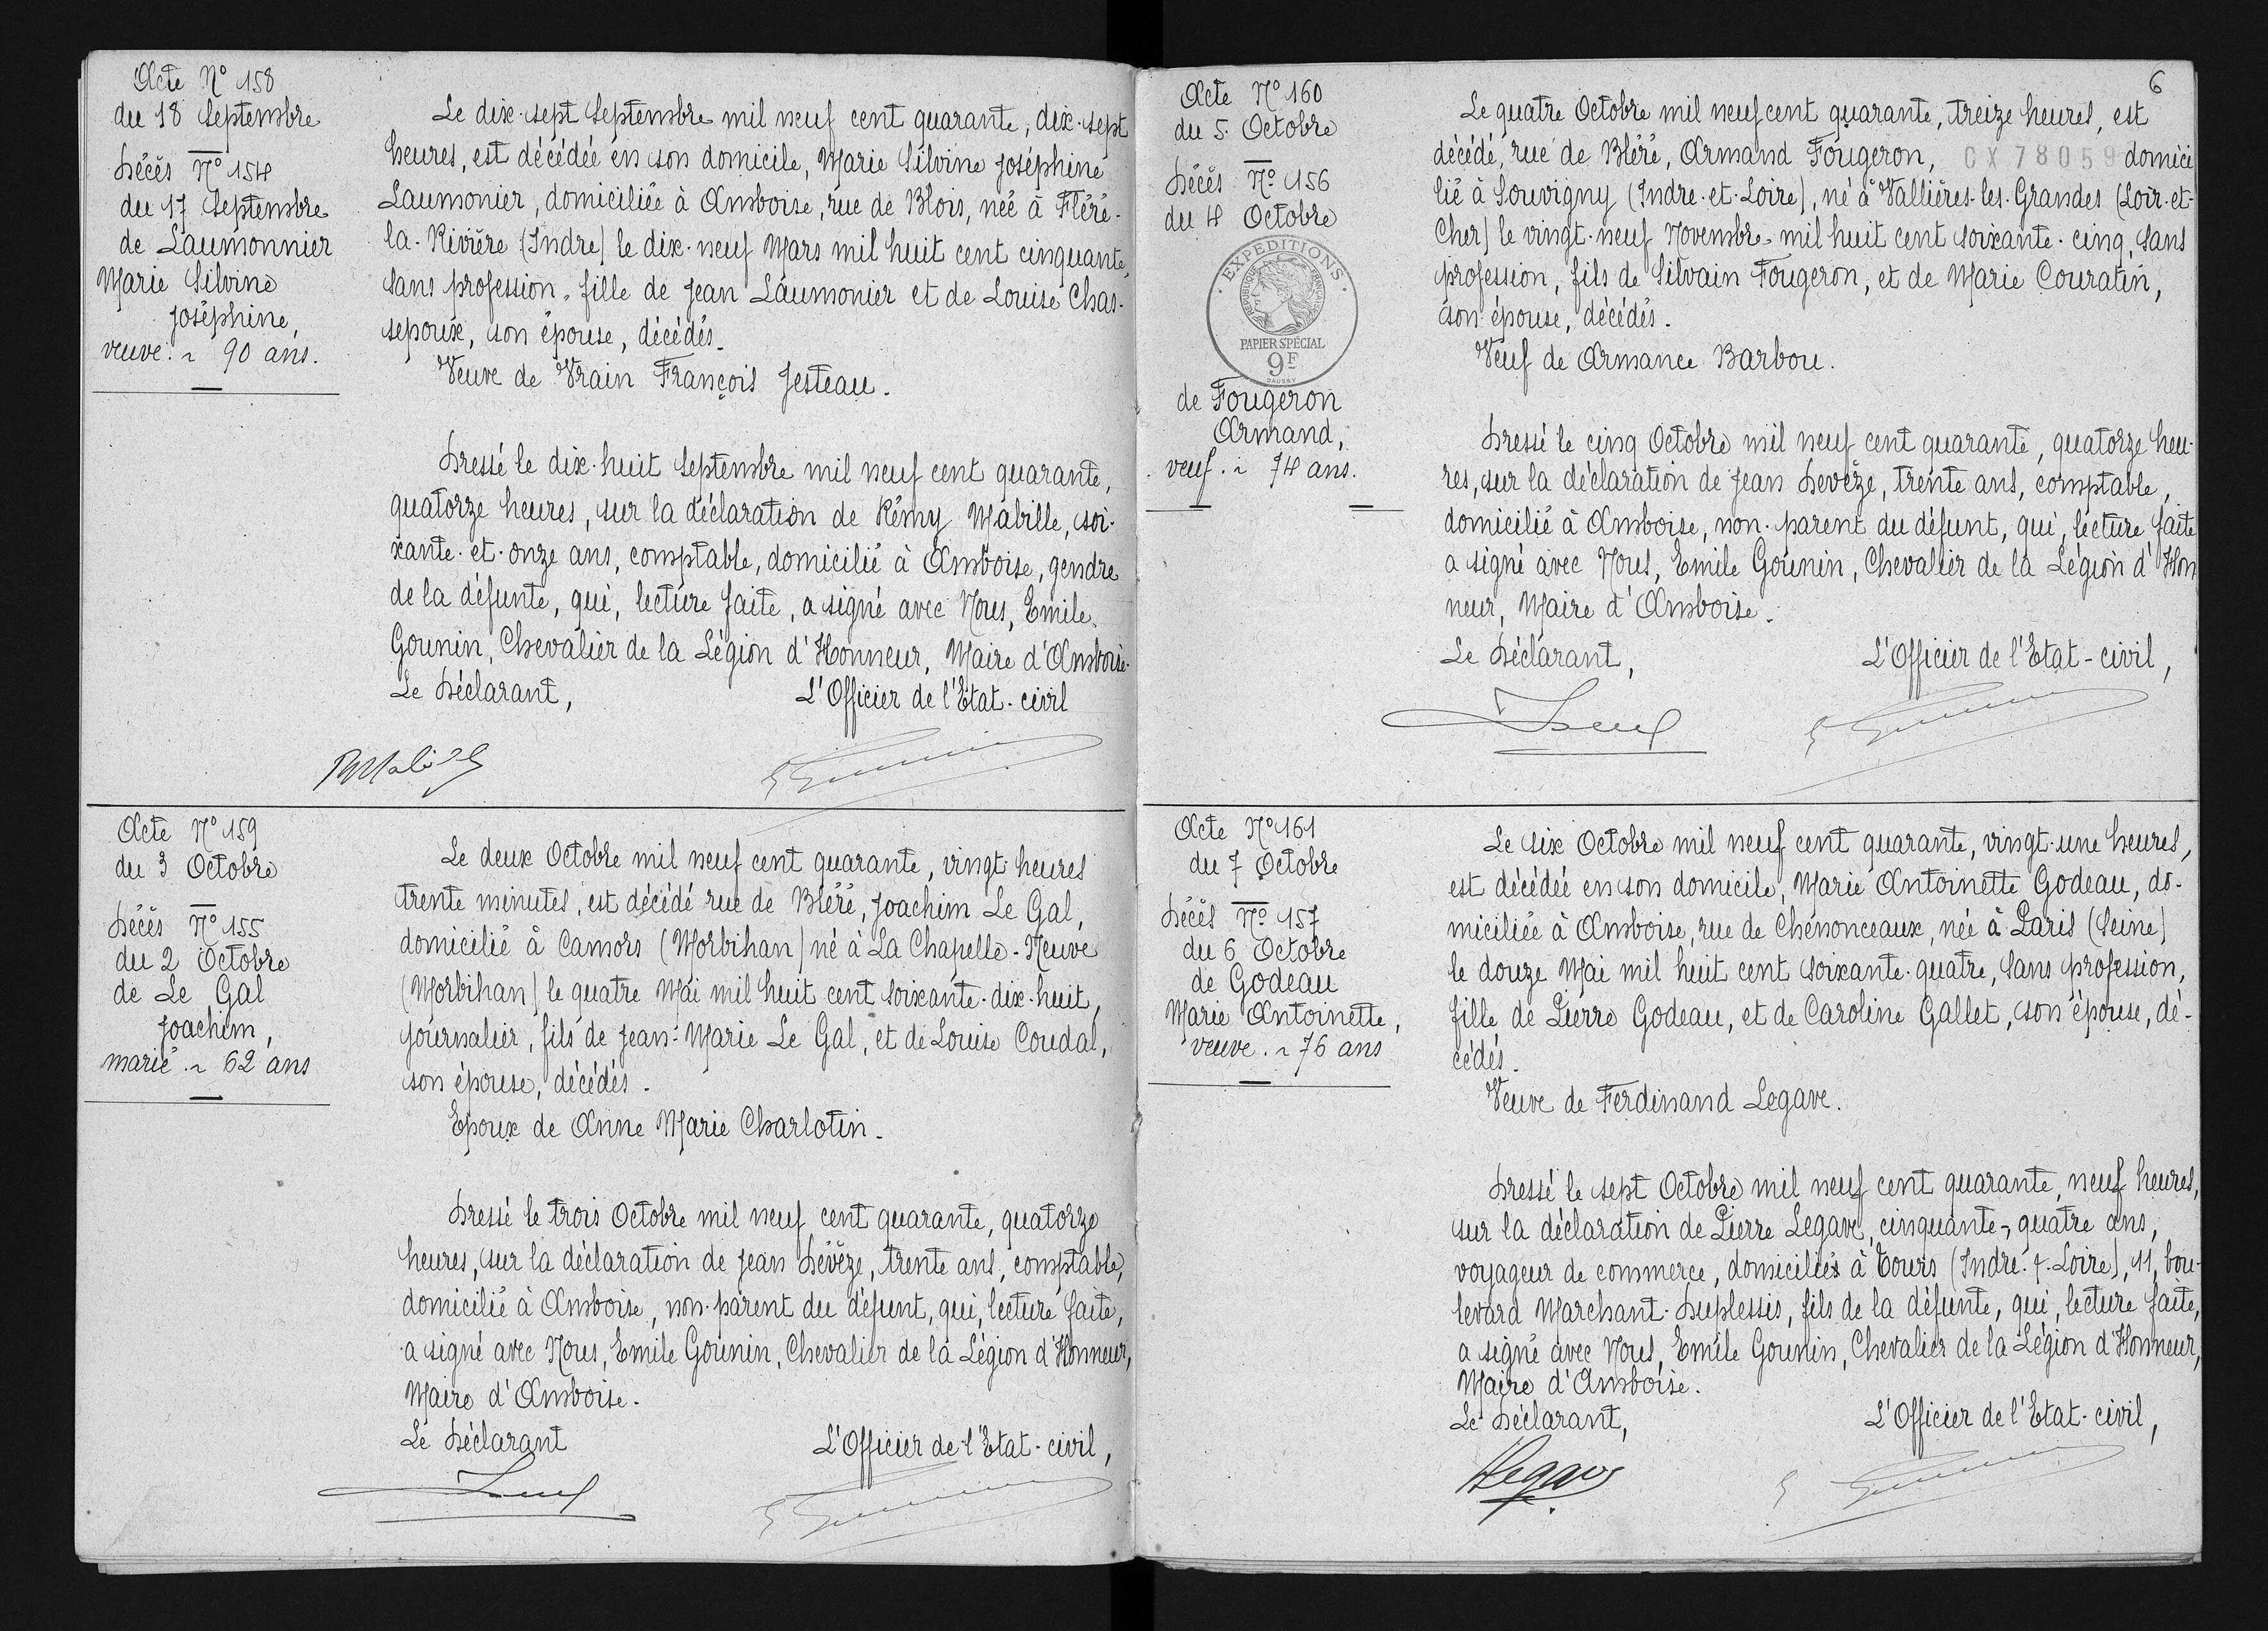 Acte N° 158
du 18 Septembre
Décès N° 154
du 17 Septembre
de Laumonnier
Marie Silvine
Joséphine,
veuve. ~ 90 ans.
Le dix-sept Septembre mil neuf cent quarante, dix-sept
heures, est décédée en son domicile, Marie Silvine Joséphine
Laumonier, domiciliée à Amboise, rue de Blois, née à Fléré-
la-Rivière (Indre) le dix-neuf Mars mil huit cent cinquante,
sans profession, fille de Jean Laumonier et de Louise Chas-
sepoux, son épouse, décédés.
Veuve de Vrain François Jesteau.
Dressé le dix-huit Septembre mil neuf cent quarante,
quatorze heures, sur la déclaration de Rémy Mabille, soi-
xante-et-onze ans, comptable, domicilié à Amboise, gendre
de la défunte, qui, lecture faite, a signé avec Nous, Emile
Gounin, Chevalier de la Légion d'Honneur, Maire d'Amboise.
Le Déclarant,
L'Officier de l'Etat-civil
RMabille
E Gounin
Acte N° 159
du 3 Octobre
Décès N° 155
du 2 Octobre
de Le Gal
Joachim,
marié. ~ 62 ans
Le deux Octobre mil neuf cent quarante, vingt heures
trente minutes, est décédé rue de Bléré, Joachim Le Gal,
domicilié à Camors (Morbihan) né à La Chapelle-Neuve
(Morbihan) le quatre Mai mil huit cent soixante-dix-huit,
journalier, fils de Jean-Marie Le Gal, et de Louise Coudal,
son épouse, décédés.
Epoux de Anne Marie Charlotin.
Dressé le trois Octobre mil neuf cent quarante, quatorze
heures, sur la déclaration de Jean Dévèze, trente ans, comptable,
domicilié à Amboise, non-parent du défunt, qui, lecture faite,
a signé avec Nous, Emile Gounin, Chevalier de la Légion d'Honneur,
Maire d'Amboise.
Le Déclarant
L'Officier de l'Etat-civil,
E Gounin
6
Acte N° 160
du 5 Octobre
Décès N° 156
du 4 Octobre
EXPÉDITIONS
RÉPUBLIQUE FRANÇAISE
PAPIER SPÉCIAL
9F
DAUSSY
de Fougeron
Armand,
veuf. ~ 74 ans.
Le quatre Octobre mil neuf cent quarante, treize heures, est
décédé, rue de Bléré, Armand Fougeron, CX 78059 domici
lié à Souvigny (Indre-et-Loire), né à Vallières-les-Grandes (Loir-et-
Cher) le vingt-neuf Novembre mil huit cent soixante-cinq, sans
profession, fils de Silvain Fougeron, et de Marie Couratin,
son épouse, décédés.
Veuf de Armance Barbou.
Dressé le cinq Octobre mil neuf cent quarante, quatorze heu-
res, sur la déclaration de Jean Devèze, trente ans, comptable,
domicilié à Amboise, non-parent du défunt, qui, lecture faite
a signé avec Nous, Emile Gounin, Chevalier de la Légion d'Hon
neur, Maire d'Amboise.
Le Déclarant,
L'Officier de l'Etat-civil,
E Gounin
Acte N° 161
du 7 Octobre
Décès N° 157
du 6 Octobre
de Godeau
Marie Antoinette,
veuve. ~ 76 ans
Le six Octobre mil neuf cent quarante, vingt-une heures,
est décédée en son domicile, Marie Antoinette Godeau, do-
miciliée à Amboise, rue de Chenonceaux, née à Paris (Seine)
le douze Mai mil huit cent soixante-quatre, sans profession,
fille de Pierre Godeau, et de Caroline Gallet, son épouse, dé-
cédés.
Veuve de Ferdinand Legave.
Dressé le sept Octobre mil neuf cent quarante, neuf heures,
sur la déclaration de Pierre Legave, cinquante-quatre ans,
voyageur de commerce, domiciliés à Tours (Indre-&-Loire), 11, bou-
levard Marchant-Duplessis, fils de la défunte, qui, lecture faite,
a signé avec Nous, Emile Gounin, Chevalier de la Légion d'Honneur,
Maire d'Amboise.
Le Déclarant,
L'Officier de l'Etat-civil,
Legave
E Gounin